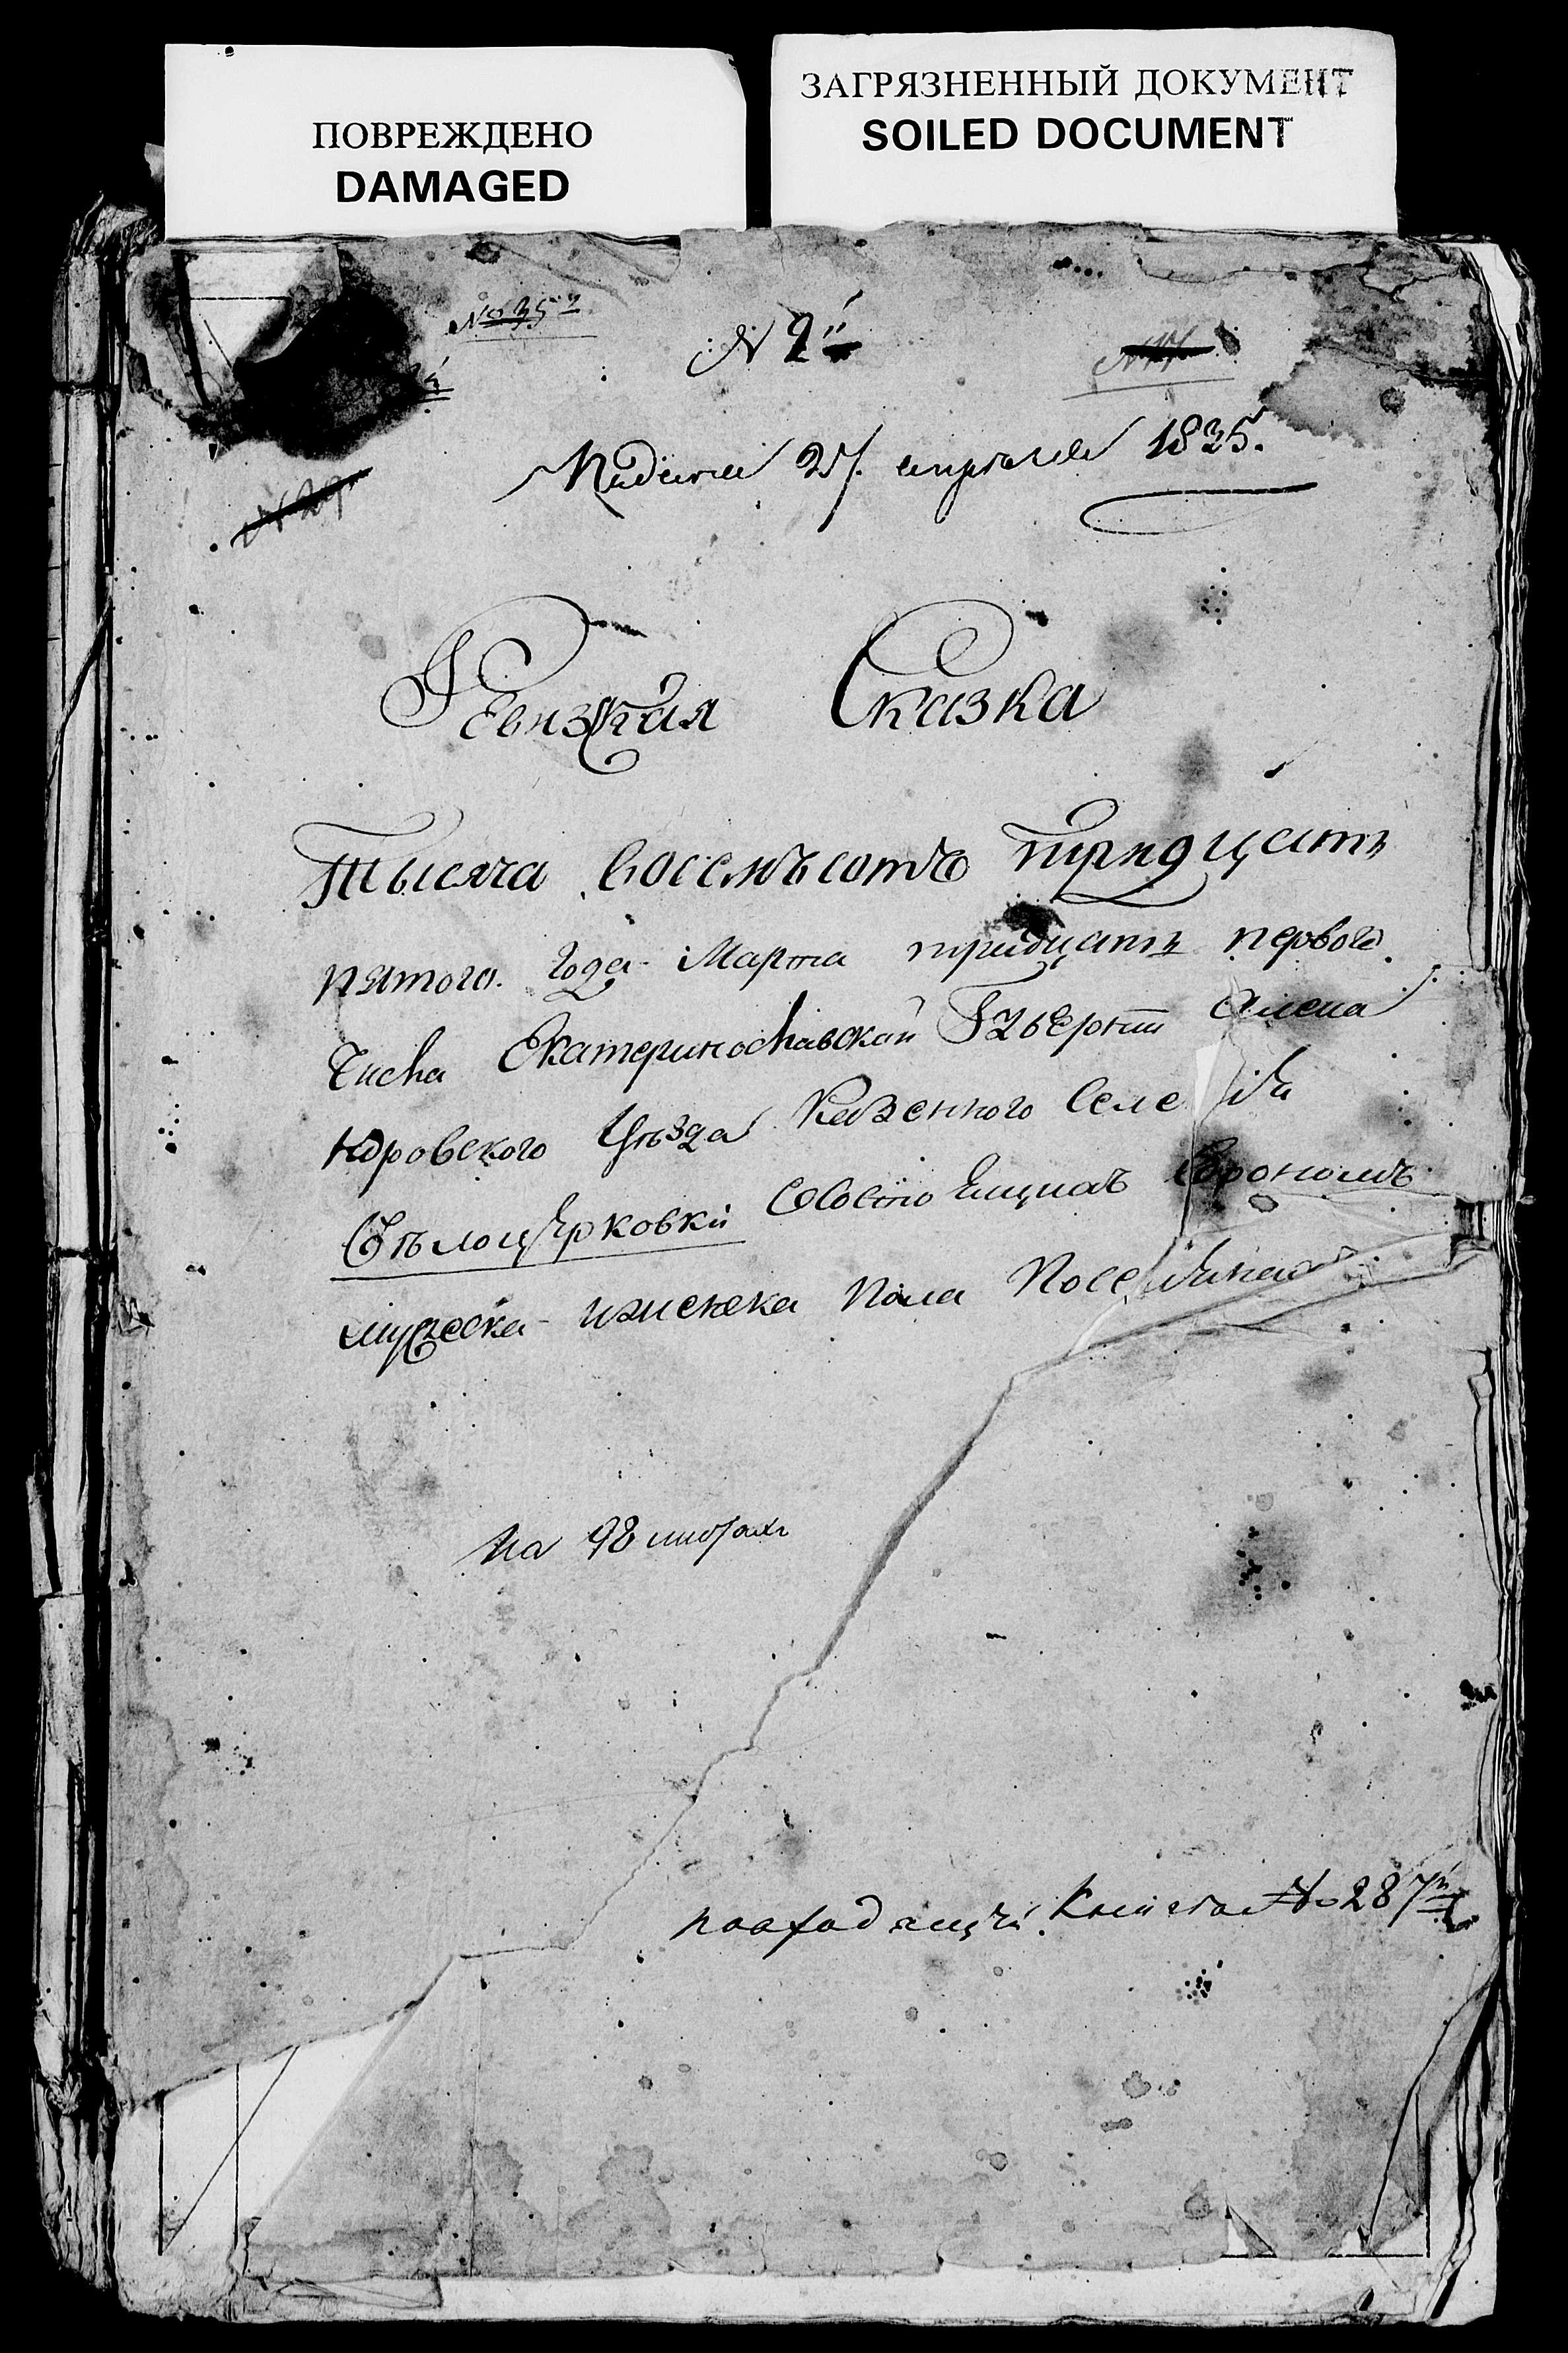 ПОВРЕЖДЕНО
DAMAGED
ЗАГРЯЗНЕННЫЙ ДОКУМЕНТ
SOILED DOCUMENT
№ 35
№ 2й
№ 29
27 апреля 1835.
Ревизкая Сказка
Тысяча восемъсотъ тридцать
пятого года Марта тридцать первого
Числа Екатеринославской Губернии Алекса
ндровского уѣзда Казенного Селения
Бѣлоцерковки Состоящихъ
мужеска и женска пола
На 98 листахъ
по входящей книги № 287